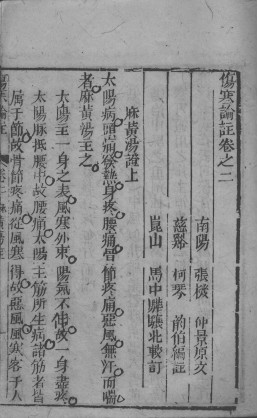 傷寒論註卷之二
南陽 張機 仲景原文
慈谿 柯琴 韵伯編註
崑山 馬中驊驤北較訂
麻黃湯證上
太陽病頭痛發熱身疼腰痛骨節疼痛惡風無汗而喘
者麻黃湯主之
太陽主一身之表風寒外束陽氣不伸故一身盡疼
太陽脉抵腰中故腰痛太陽主筋所生病諸筋者皆
屬于節故骨節疼痛從風寒得故惡風風寒客于人
傷寒論註